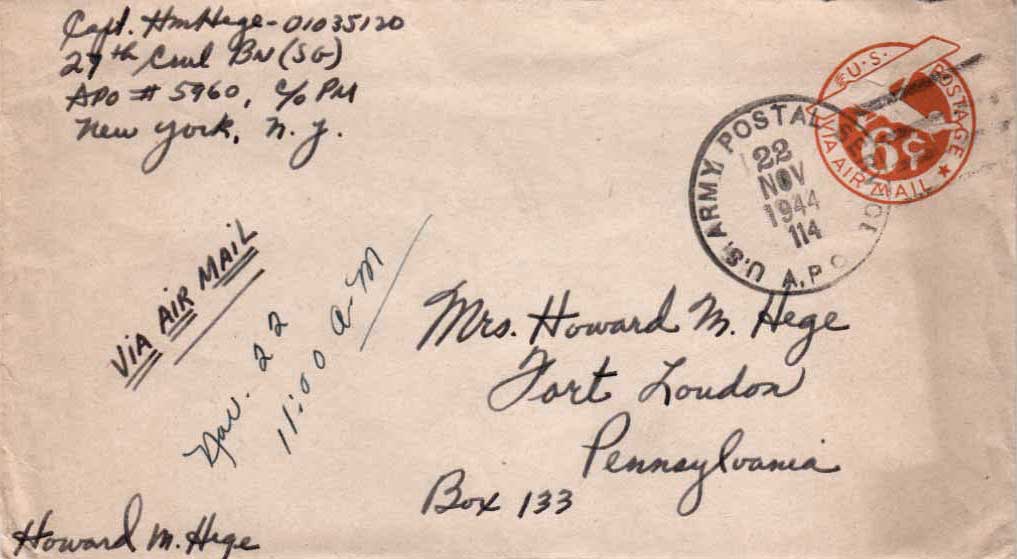 Capt. HM Hege - 01035120
27th Cml Bn (SG)
APO # 5960, c/o PM
New York, N.Y.
U.S. POSTAGE
6¢
VIA AIR MAIL
U.S. ARMY POSTAL SERVICE
22
NOV
1944
114
A.P.O.
VIA AIR MAIL
Nov. 22
11:00 A-M
Mrs. Howard M. Hege
Fort Loudon
Pennsylvania
Box 133
Howard M. Hege